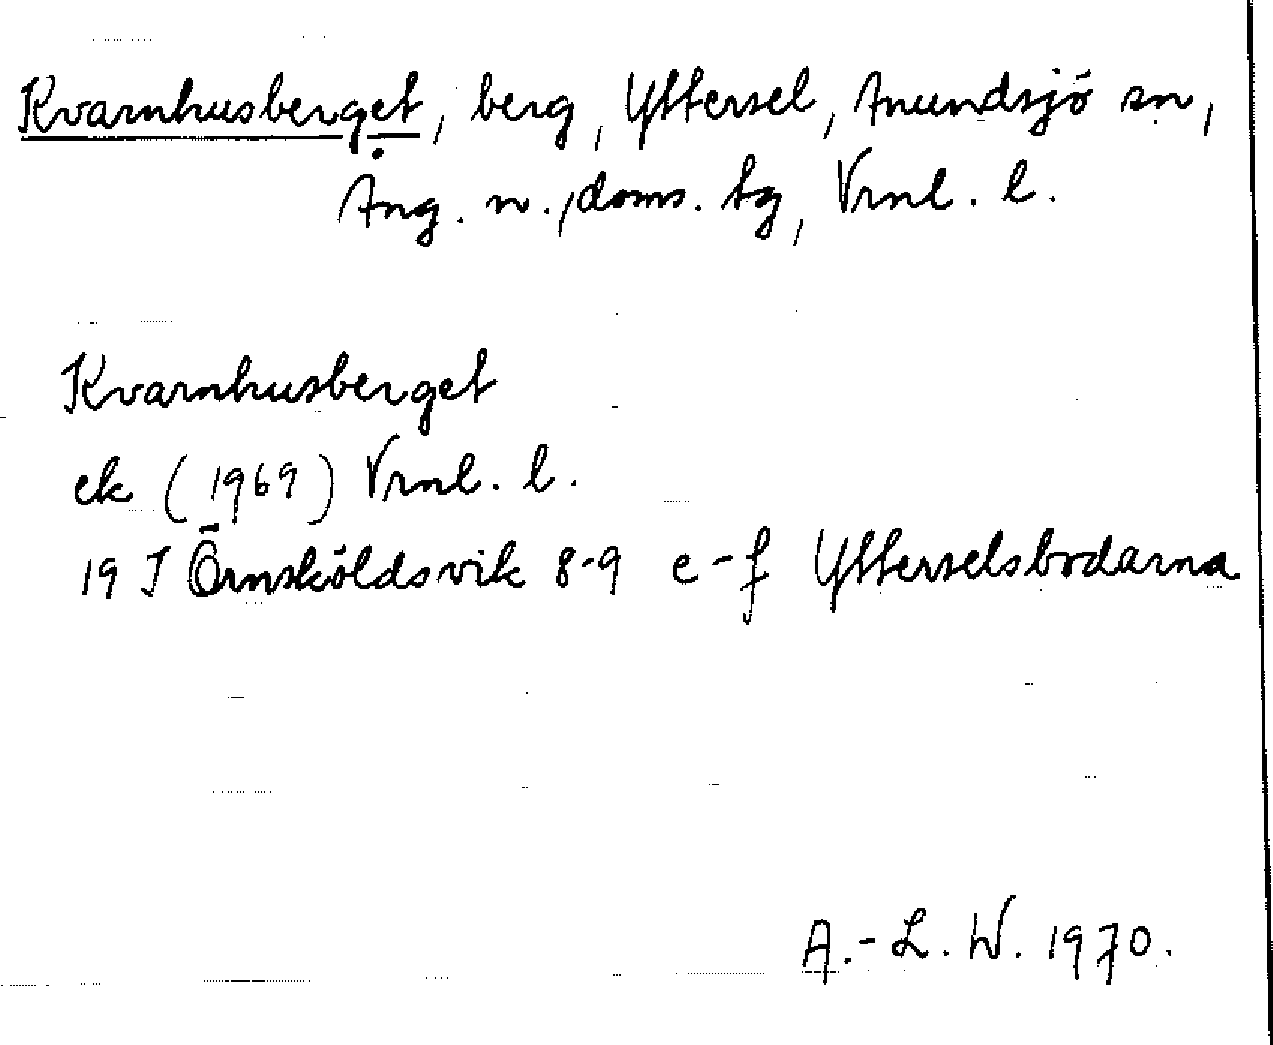 Kvarnhusberget, berg, Yttersel, Anundsjö sn,
Ång. n., doms. tg, Vrnl. l.
Kvarnhusberget
ek (1969) Vrnl. l.
19 J Örnsköldsvik 8-9 e-f Ytterselsbodarna
A.-L. W. 1970.